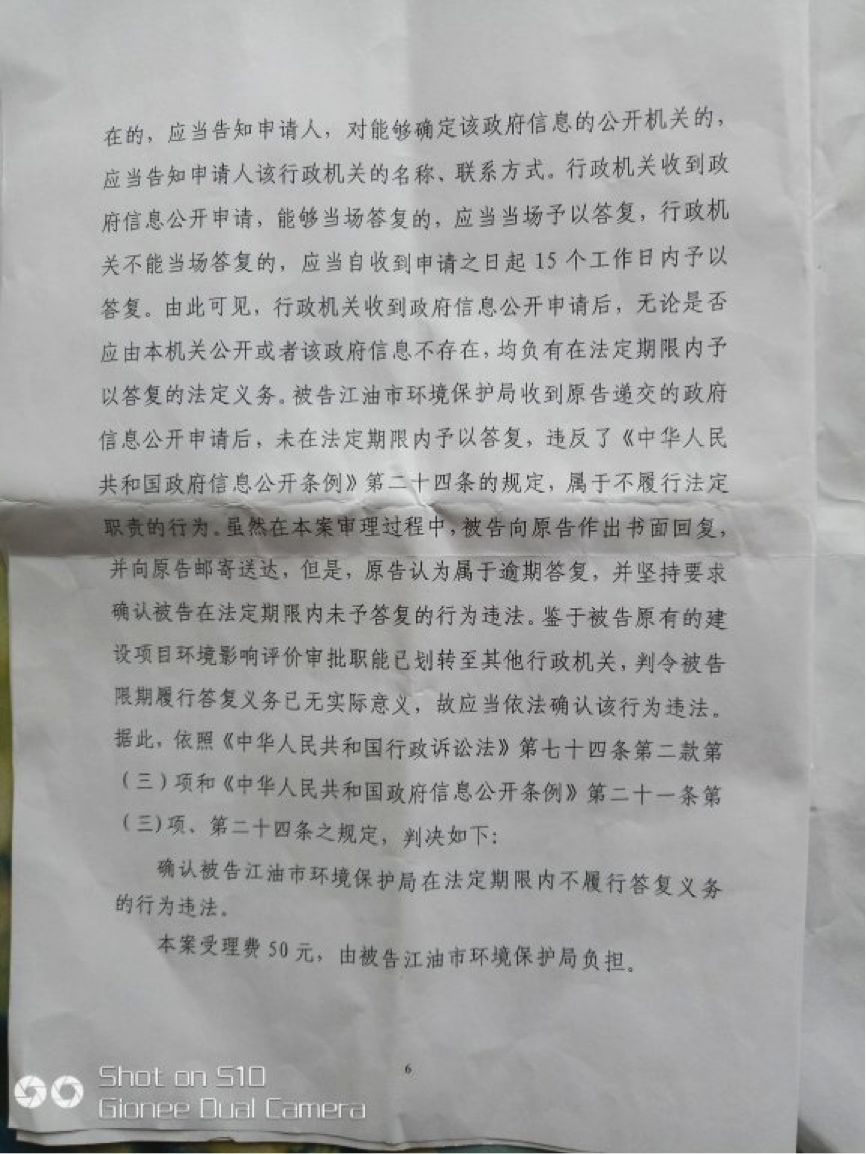 在的，应当告知申请人，对能够确定该政府信息的公开机关的，
应当告知申请人该行政机关的名称、联系方式。行政机关收到政
府信息公开申请，能够当场答复的，应当当场予以答复，行政机
关不能当场答复的，应当自收到申请之日起 15 个工作日内予以
答复。由此可见，行政机关收到政府信息公开申请后，无论是否
应由本机关公开或者该政府信息不存在，均负有在法定期限内予
以答复的法定义务。被告江油市环境保护局收到原告递交的政府
信息公开申请后，未在法定期限内予以答复，违反了《中华人民
共和国政府信息公开条例》第二十四条的规定，属于不履行法定
职责的行为。虽然在本案审理过程中，被告向原告作出书面回复，
并向原告邮寄送达，但是，原告认为属于逾期答复，并坚持要求
确认被告在法定期限内未予答复的行为违法。鉴于被告原有的建
设项目环境影响评价审批职能已划转至其他行政机关，判令被告
限期履行答复义务已无实际意义，故应当依法确认该行为违法。
据此，依照《中华人民共和国行政诉讼法》第七十四条第二款第
（三）项和《中华人民共和国政府信息公开条例》第二十一条第
（三）项、第二十四条之规定，判决如下：
确认被告江油市环境保护局在法定期限内不履行答复义务
的行为违法。
本案受理费 50 元，由被告江油市环境保护局负担。
6
Shot on S10
Gionee Dual Camera